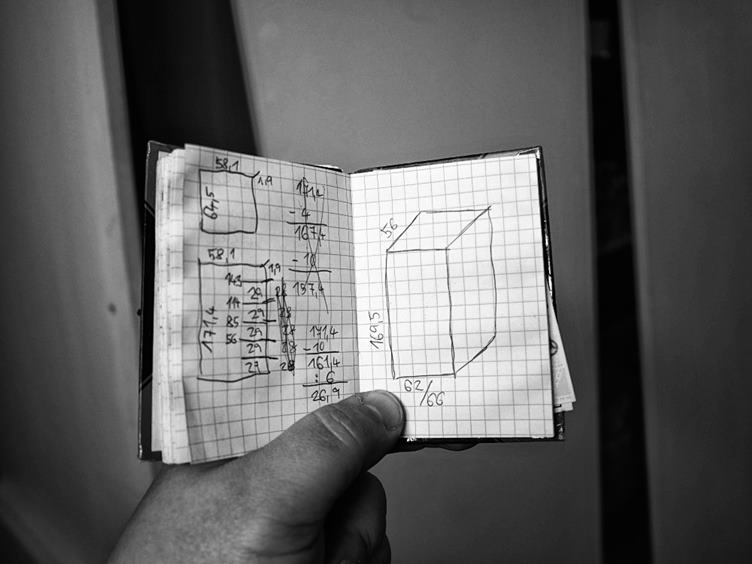 58,1
1,9
64,5
58,1
1,9
171,4
143
29
114
29
85
29
56
29
27
28
28
28
28
28
171,4
- 4
167,4
- 10
157,4
171,4
- 10
161,4
: 6
26,9
56
169,5
62/66